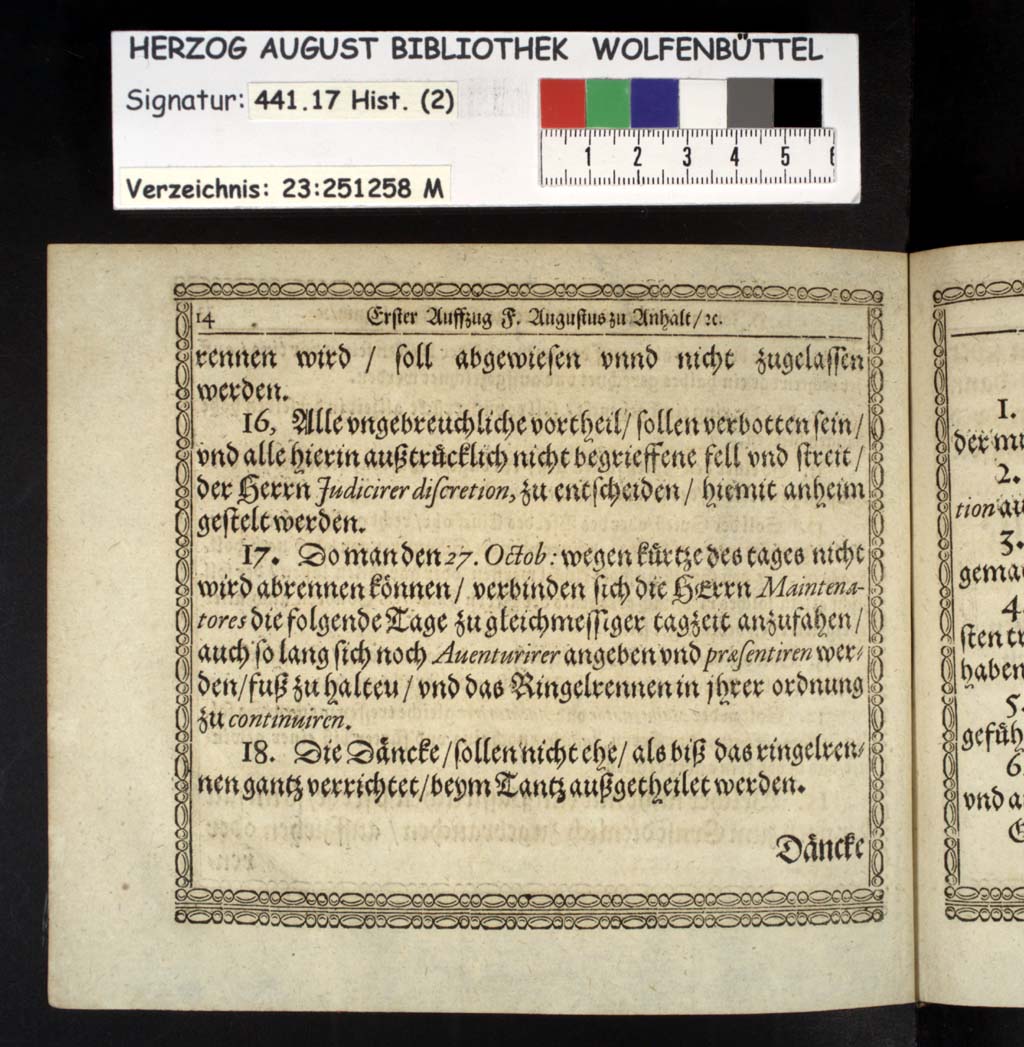 HERZOG AUGUST BIBLIOTHEK WOLFENBÜTTEL
Signatur: 441.17 Hist. (2)
1 2 3 4 5 6
Verzeichnis: 23:251258 M
14 Erster Auffzug F. Augustus zu Anhalt/ꝛc.
rennen wird / soll abgewiesen vnnd nicht zugelassen
werden.
16, Alle vngebreuchliche vortheil/ sollen verbotten sein/
vnd alle hierin außtrücklich nicht begrieffene fell vnd streit/
der Herrn Judicirer discretion, zu entscheiden/ hiemit anheim
gestelt werden.
17. Do man den 27. Octob: wegen kürtze des tages nicht
wird abrennen können/ verbinden sich die HErrn Maintena-
tores die folgende Tage zu gleichmessiger tagzeit anzufahen/
auch so lang sich noch Auenturirer angeben vnd præsentiren wer-
den/fuß zu halteu/ vnd das Ringelrennen in jhrer ordnung
zu continuiren.
18. Die Däncke/sollen nicht ehe/ als biß das ringelren-
nen gantz verrichtet/beym Tantz außgetheilet werden.
Däncke
1.
der mu
2.
tion au
3.
gemac
4.
sten tr
haben
5.
gefüh
6.
vnd a